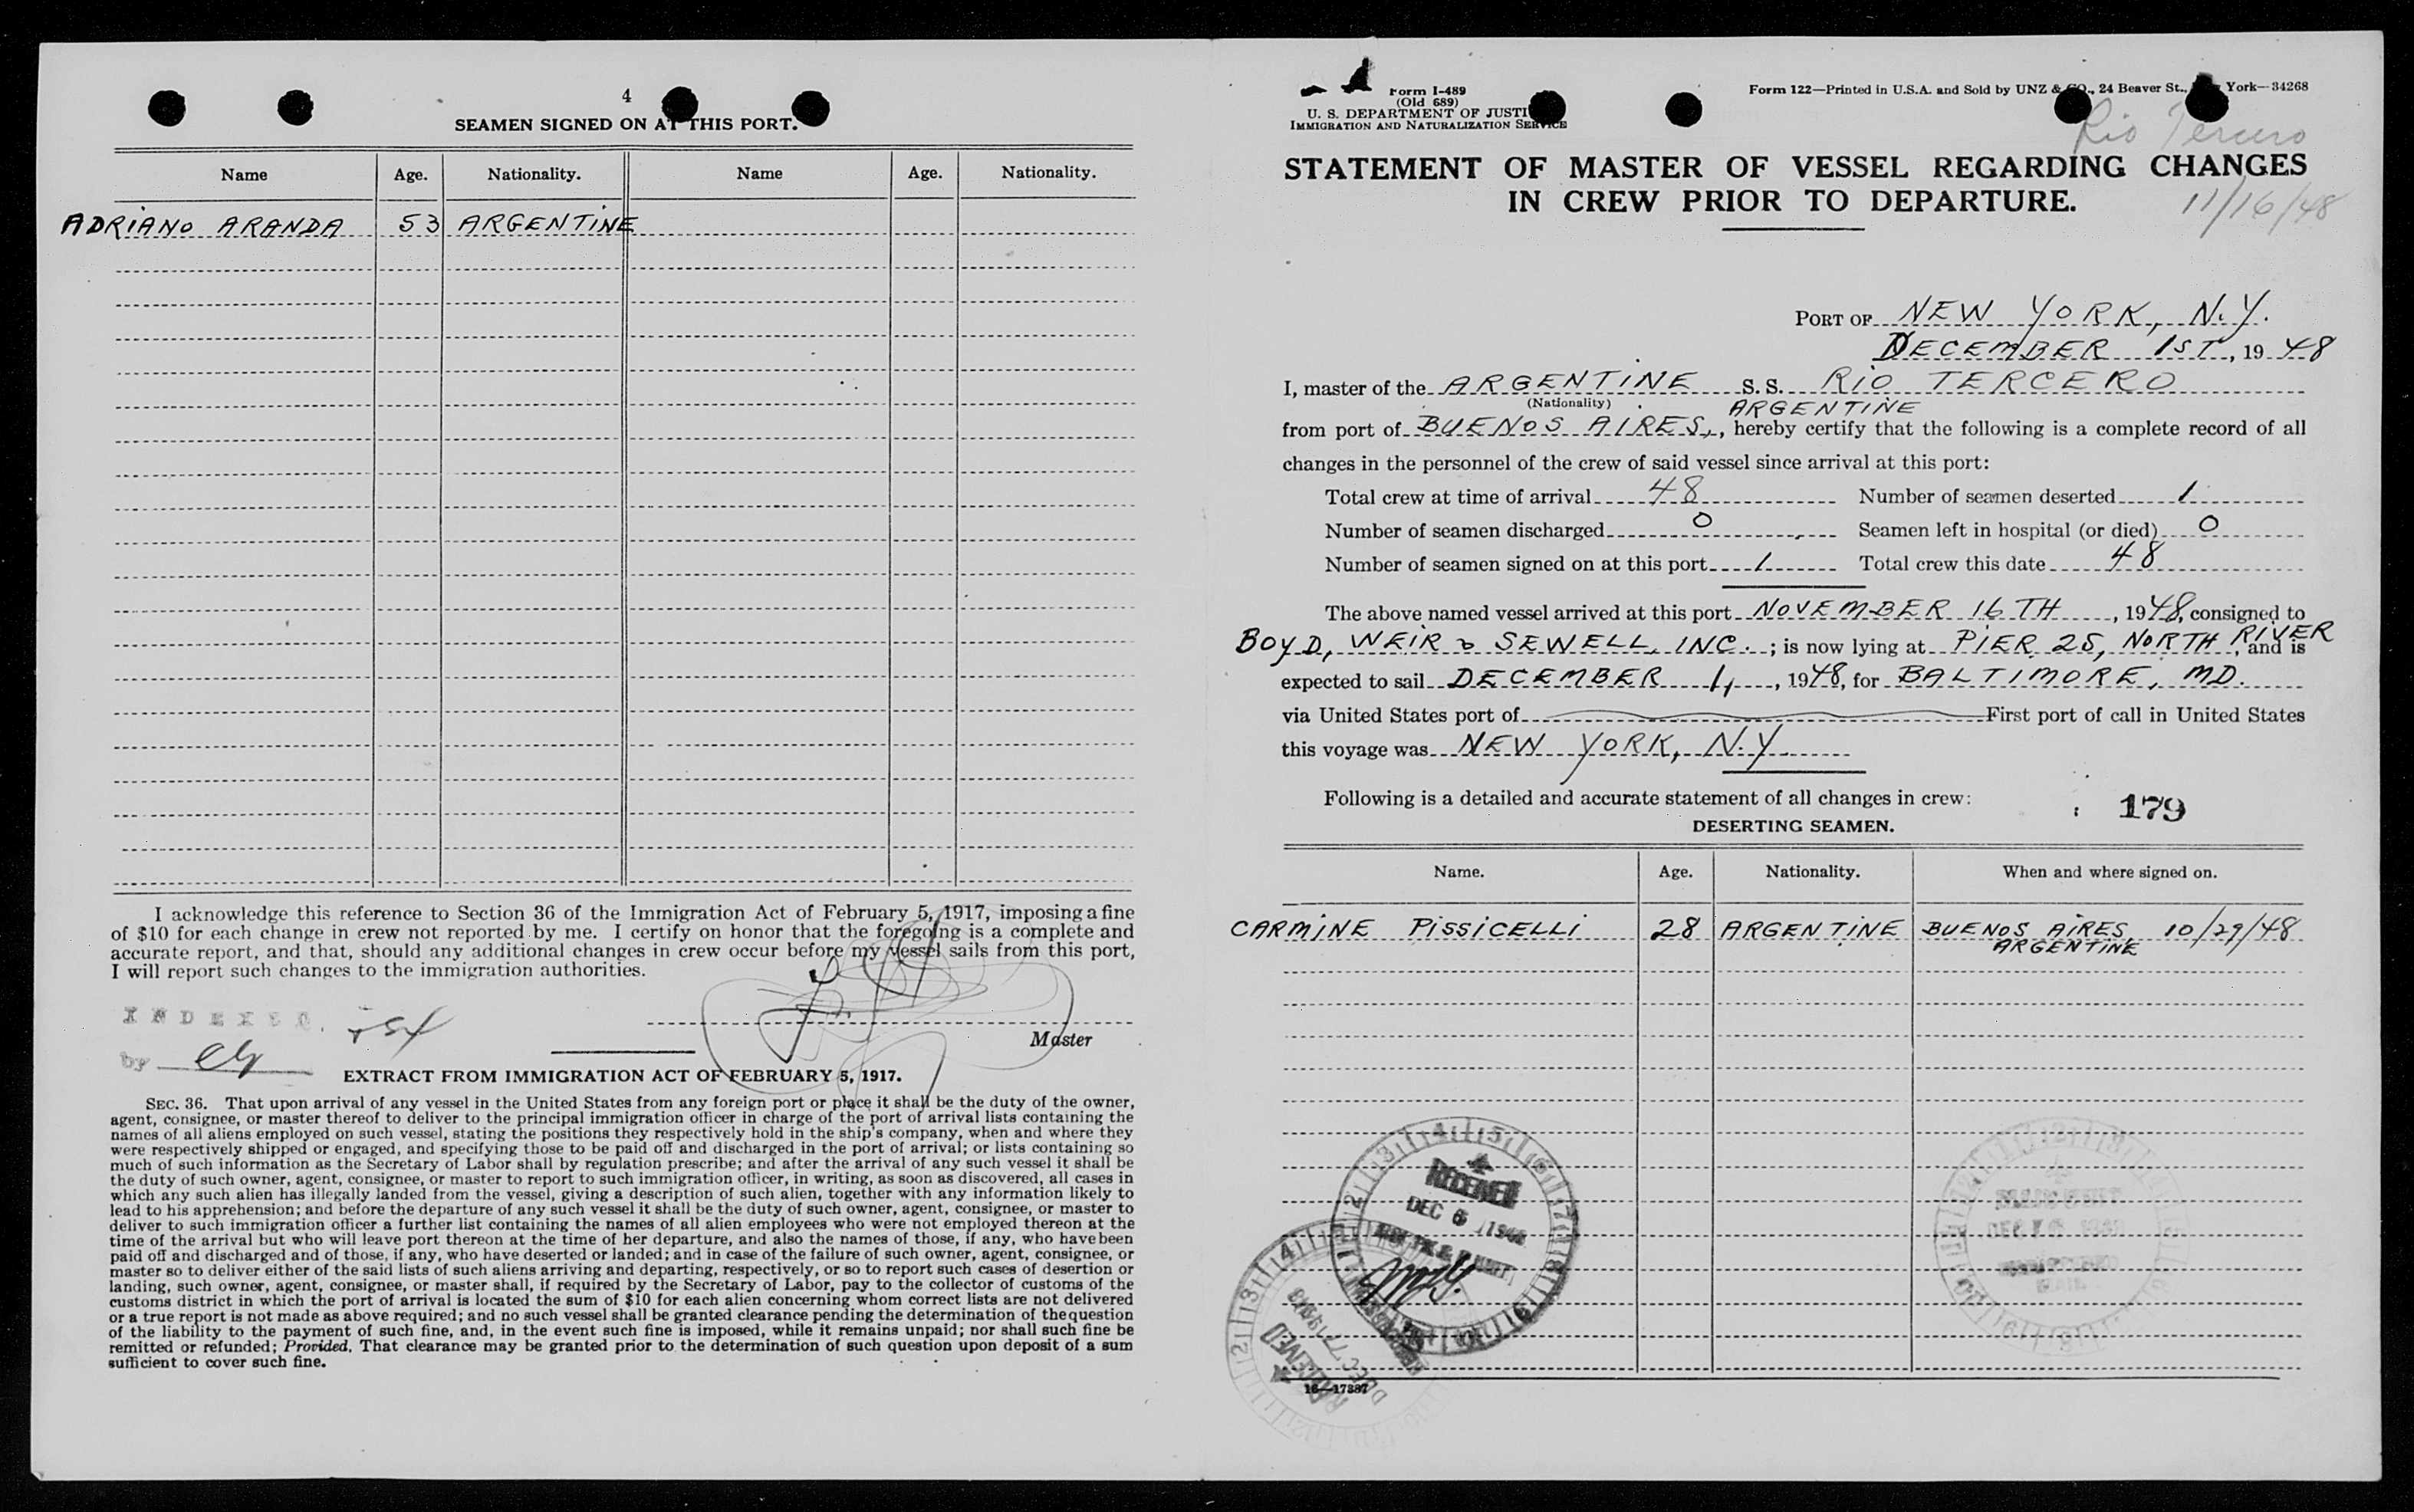 4
SEAMEN SIGNED ON AT THIS PORT.
Name Age. Nationality. Name Age. Nationality.
ADRIANO ARANDA 53 ARGENTINE
I acknowledge this reference to Section 36 of the Immigration Act of February 5, 1917, imposing a fine
of $10 for each change in crew not reported by me. I certify on honor that the foregoing is a complete and
accurate report, and that, should any additional changes in crew occur before my vessel sails from this port,
I will report such changes to the immigration authorities.
INDEXED.
by
Master
EXTRACT FROM IMMIGRATION ACT OF FEBRUARY 5, 1917.
SEC. 36. That upon arrival of any vessel in the United States from any foreign port or place it shall be the duty of the owner,
agent, consignee, or master thereof to deliver to the principal immigration officer in charge of the port of arrival lists containing the
names of all aliens employed on such vessel, stating the positions they respectively hold in the ship's company, when and where they
were respectively shipped or engaged, and specifying those to be paid off and discharged in the port of arrival; or lists containing so
much of such information as the Secretary of Labor shall by regulation prescribe; and after the arrival of any such vessel it shall be
the duty of such owner, agent, consignee, or master to report to such immigration officer, in writing, as soon as discovered, all cases in
which any such alien has illegally landed from the vessel, giving a description of such alien, together with any information likely to
lead to his apprehension; and before the departure of any such vessel it shall be the duty of such owner, agent, consignee, or master to
deliver to such immigration officer a further list containing the names of all alien employees who were not employed thereon at the
time of the arrival but who will leave port thereon at the time of her departure, and also the names of those, if any, who have been
paid off and discharged and of those, if any, who have deserted or landed; and in case of the failure of such owner, agent, consignee, or
master so to deliver either of the said lists of such aliens arriving and departing, respectively, or so to report such cases of desertion or
landing, such owner, agent, consignee, or master shall, if required by the Secretary of Labor, pay to the collector of customs of the
customs district in which the port of arrival is located the sum of $10 for each alien concerning whom correct lists are not delivered
or a true report is not made as above required; and no such vessel shall be granted clearance pending the determination of the question
of the liability to the payment of such fine, and, in the event such fine is imposed, while it remains unpaid; nor shall such fine be
remitted or refunded; Provided, That clearance may be granted prior to the determination of such question upon deposit of a sum
sufficient to cover such fine.
Form I-489
(Old 689)
U. S. DEPARTMENT OF JUSTICE
IMMIGRATION AND NATURALIZATION SERVICE
Form 122—Printed in U.S.A. and Sold by UNZ & CO., 24 Beaver St., York—34268
Rio Tercero
STATEMENT OF MASTER OF VESSEL REGARDING CHANGES
IN CREW PRIOR TO DEPARTURE.
11/16/48
PORT OF NEW YORK, N.Y.
DECEMBER 1ST, 1948
I, master of the ARGENTINE S. S. RIO TERCERO
(Nationality) ARGENTINE
from port of BUENOS AIRES, hereby certify that the following is a complete record of all
changes in the personnel of the crew of said vessel since arrival at this port:
Total crew at time of arrival 48 Number of seamen deserted 1
Number of seamen discharged 0 Seamen left in hospital (or died) 0
Number of seamen signed on at this port 1 Total crew this date 48
The above named vessel arrived at this port NOVEMBER 16TH, 1948, consigned to
BOYD, WEIR & SEWELL, INC.; is now lying at PIER 25, NORTH RIVER, and is
expected to sail DECEMBER 1, 1948, for BALTIMORE, MD.
via United States port of First port of call in United States
this voyage was NEW YORK, N.Y.
Following is a detailed and accurate statement of all changes in crew:
179
DESERTING SEAMEN.
Name. Age. Nationality. When and where signed on.
CARMINE PISSICELLI 28 ARGENTINE BUENOS AIRES, 10/29/48
ARGENTINE
RECEIVED
DEC 6 1948
DEC 7 1948
RECEIVED
16—17387